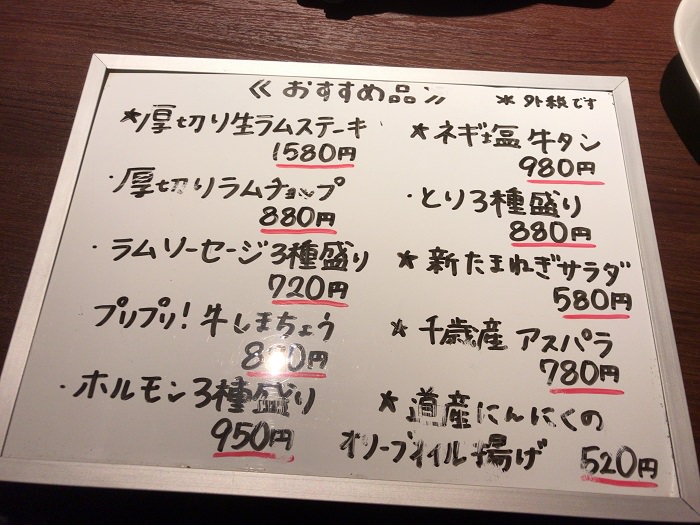 《おすすめ品》
＊外税です
★厚切り生ラムステーキ
1580円
・厚切りラムチョップ
880円
・ラムソーセージ3種盛り
720円
プリプリ!牛しまちょう
円
・ホルモン3種盛り
950円
★ネギ塩牛タン
980円
・とり3種盛り
880円
★新たまねぎサラダ
580円
★千歳産アスパラ
780円
★道産にんにくの
オリーブオイル揚げ 520円